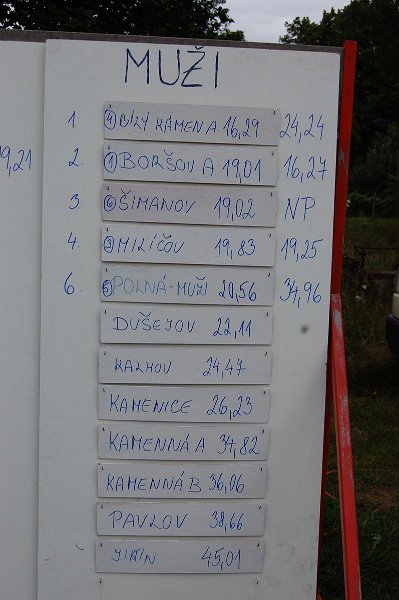 MUŽI
1. ④ BÍLÝ KÁMEN A 16,29 24,24
2. ① BORŠOV A 19,01 16,27
3 ⑥ ŠIMANOV 19,02 NP
4. ③ MILÍČOV 19,83 19,25
6. ⑤ POLNÁ-MUŽI 20,56 34,96
DUŠEJOV 22,11
KALHOV 24,47
KAMENICE 26,23
KAMENNÁ A 34,82
KAMENNÁ B 36,06
PAVLOV 38,66
JIŘÍN 45,01